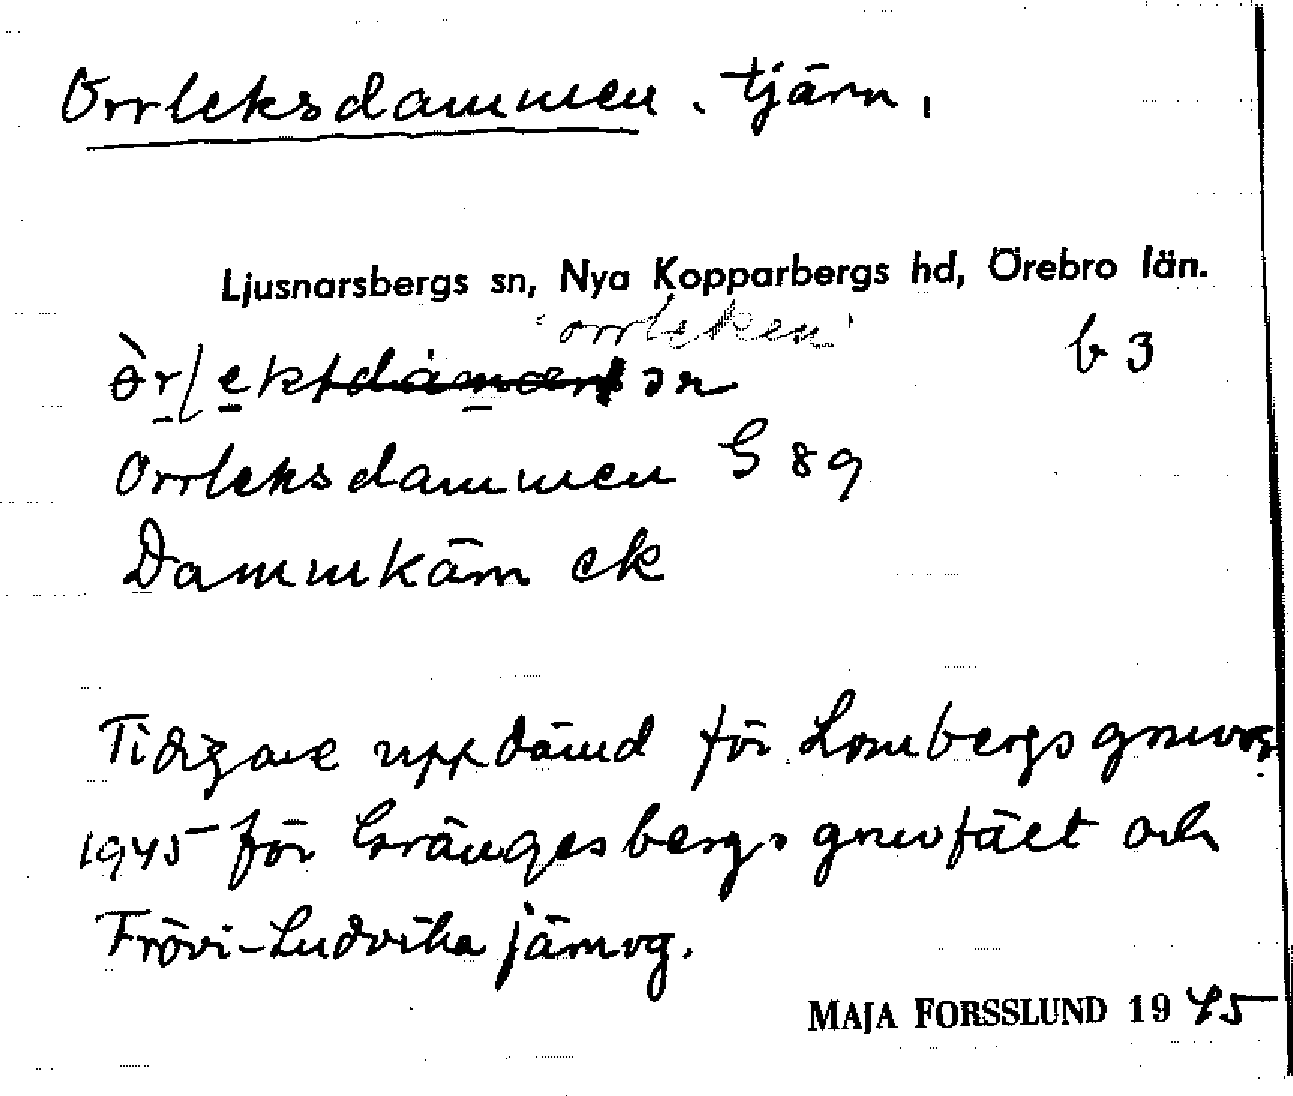 Orrleksdammen, tjärn,
Ljusnarsbergs sn, Nya Kopparbergs hd, Örebro län.
'orrleken'
b 3
Orrleksdammen G 89
Dammkärn ek
Tidigare uppdämd för Lombergsgruvor,
1945 för Grängesbergs gruvfält och
Frövi-Ludvika järnvg.
MAJA FORSSLUND 1945